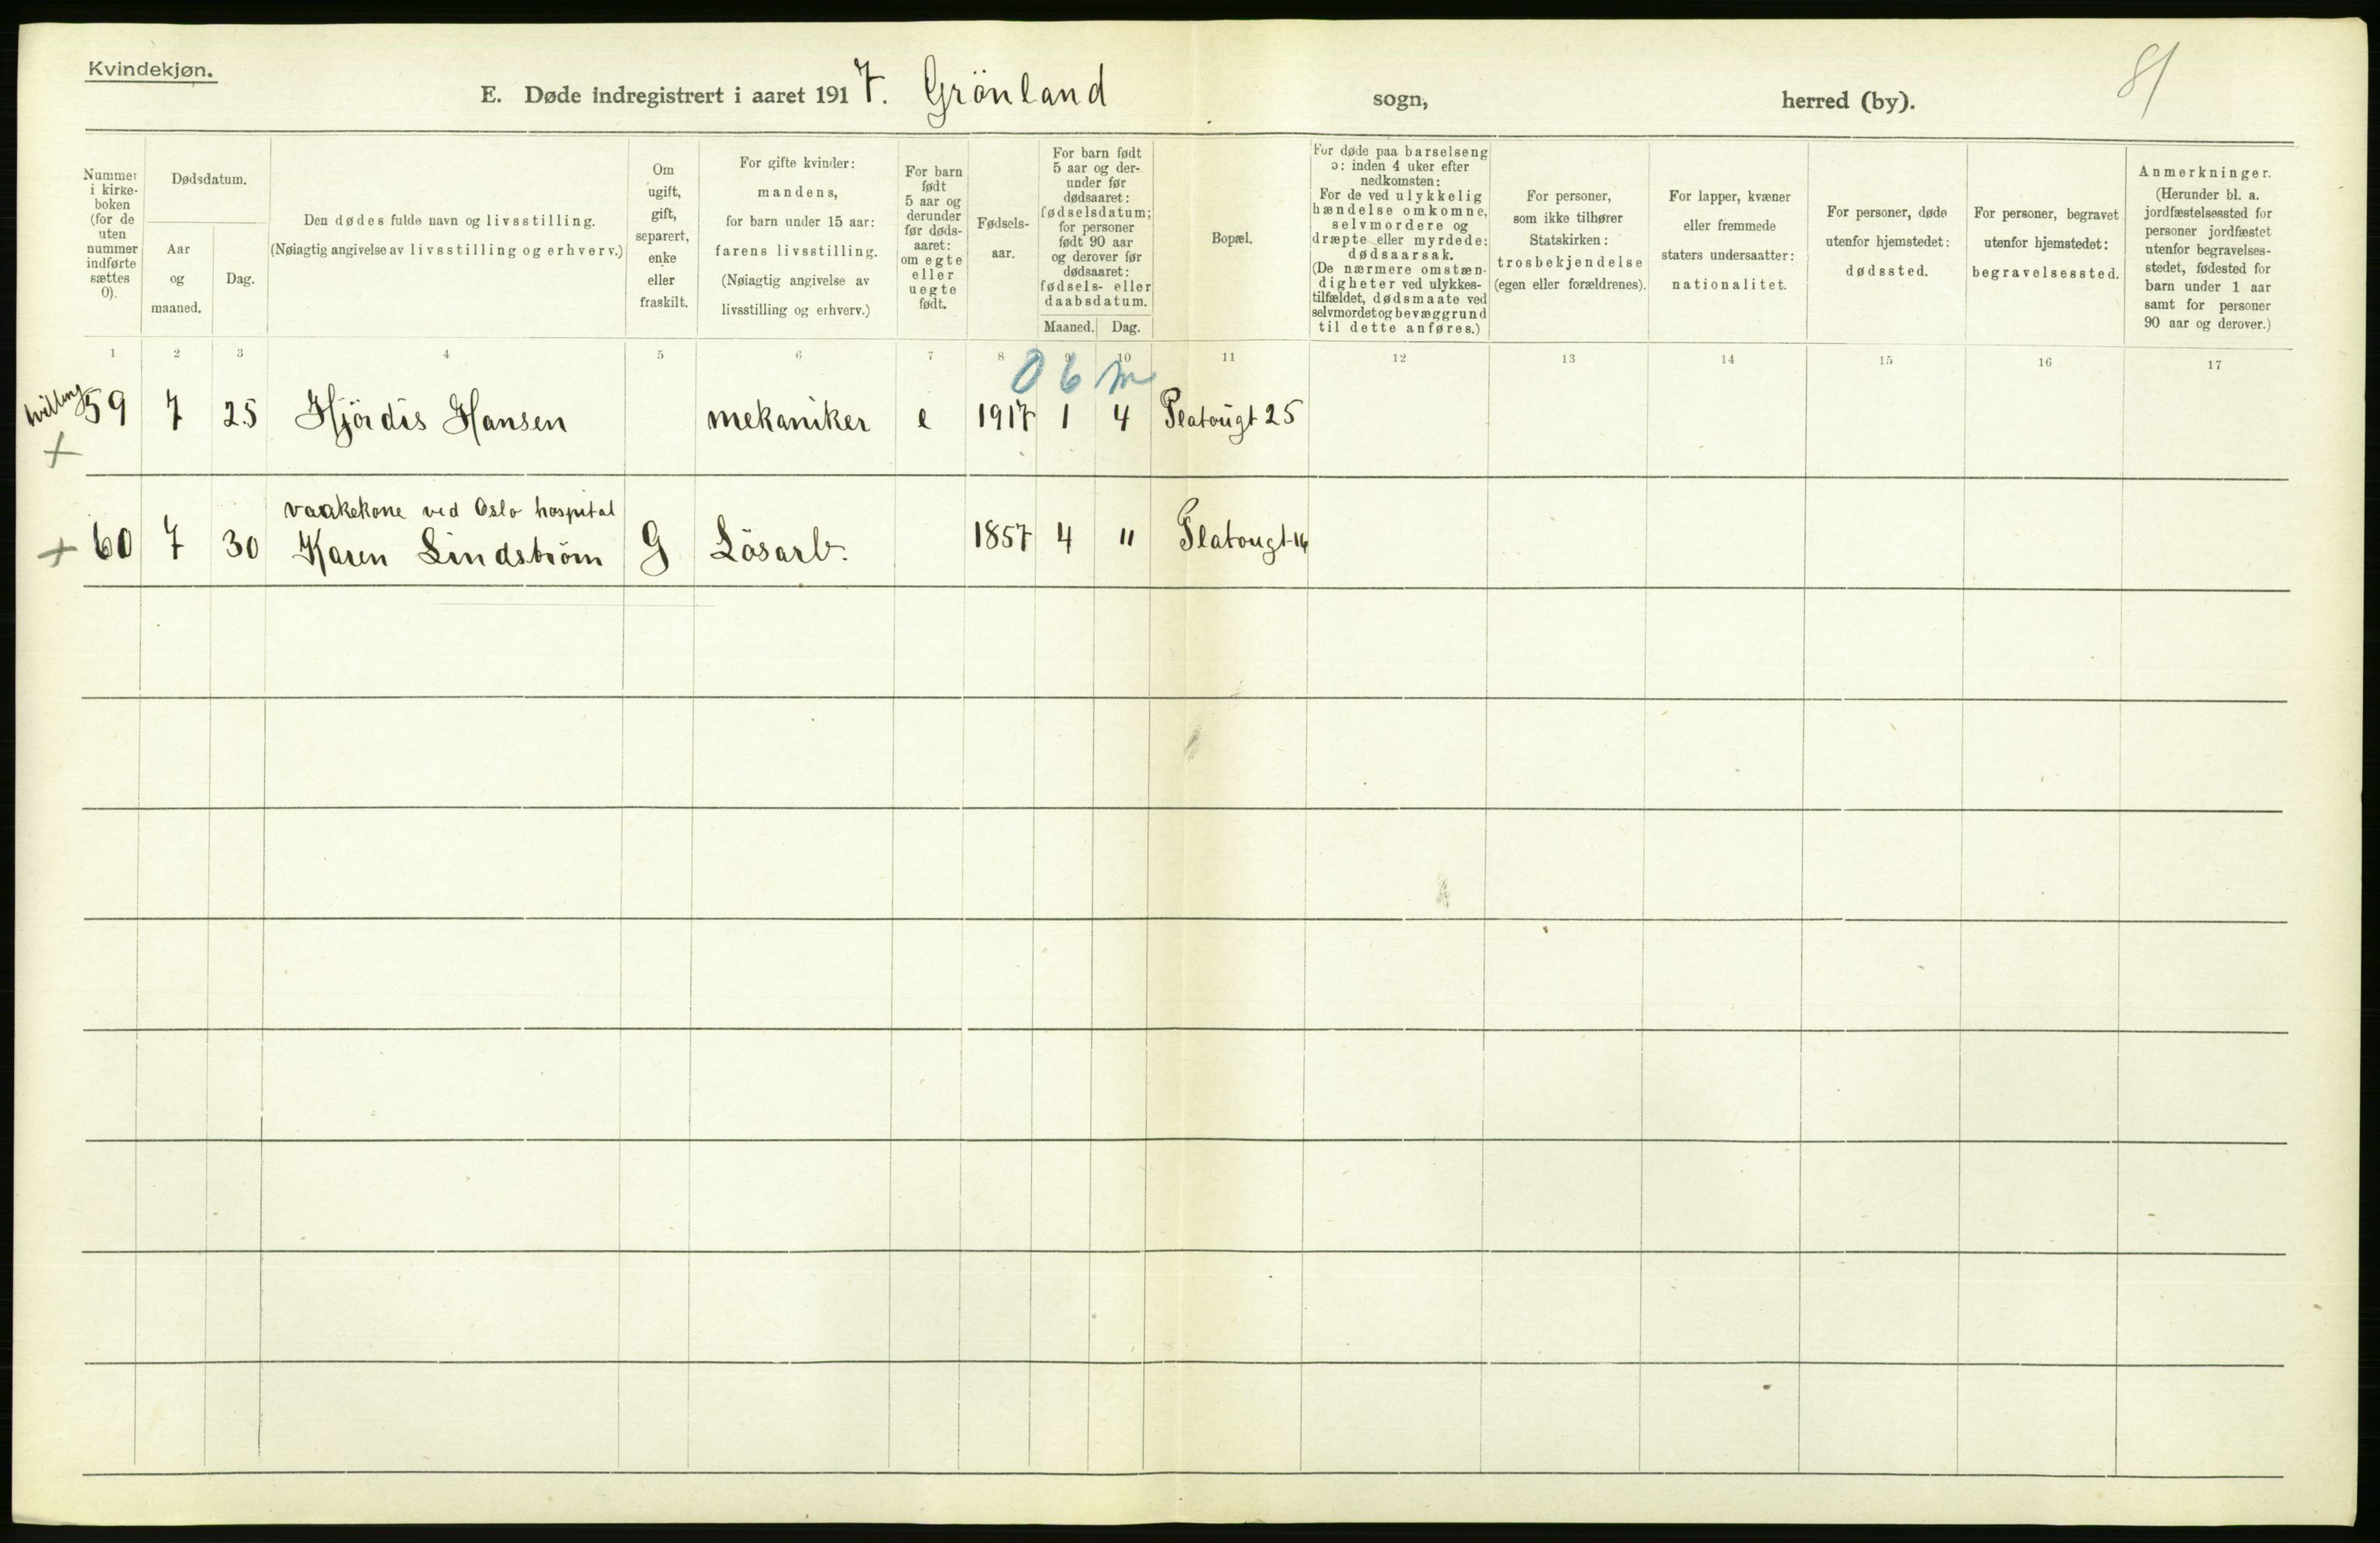 Kvindekjøn.
E. Døde indregistrert i aaret 1917. Grönland sogn, herred (by).
81
Nummer i kirke-boken (for de uten nummer indførte sættes 0).
Dødsdatum.
Aar og maaned.
Dag.
Den dødes fulde navn og livsstilling.
(Nøiagtig angivelse av livsstilling og erhverv.)
Om ugift, gift, separert, enke eller fraskilt.
For gifte kvinder: mandens, for barn under 15 aar: farens livsstilling.
(Nøiagtig angivelse av livsstilling og erhverv.)
For barn født 5 aar og derunder før døds-aaret: om egte eller uegte født.
Fødsels-aar.
For barn født 5 aar og der-under før dødsaaret: fødselsdatum; for personer født 90 aar og derover før dødsaaret: fødsels- eller daabsdatum.
Maaned. Dag.
Bopæl.
For døde paa barselseng ɔ: inden 4 uker efter nedkomsten: For de ved ulykkelig hændelse omkomne, selvmordere og dræpte eller myrdede: dødsaarsak.
(De nærmere omstæn-digheter ved ulykkes-tilfældet, dødsmaate ved selvmordet og bevæggrund til dette anføres.)
For personer, som ikke tilhører Statskirken: trosbekjendelse (egen eller forældrenes).
For lapper, kvæner eller fremmede staters undersaatter: nationalitet.
For personer, døde utenfor hjemstedet: dødssted.
For personer, begravet utenfor hjemstedet: begravelsessted.
Anmerkninger.
(Herunder bl. a. jordfæstelsessted for personer jordfæstet utenfor begravelses-stedet, fødested for barn under 1 aar samt for personer 90 aar og derover.)
1 2 3 4 5 6 7 8 9 10 11 12 13 14 15 16 17
0 6 m
tvilling 59 7 25 Hjördis Hansen mekaniker e 1917 1 4 Platougt 25
+
vaakekone ved Oslo hospital
+ 60 7 30 Karen Lindström G Lösarb. 1857 4 " Platougt 16